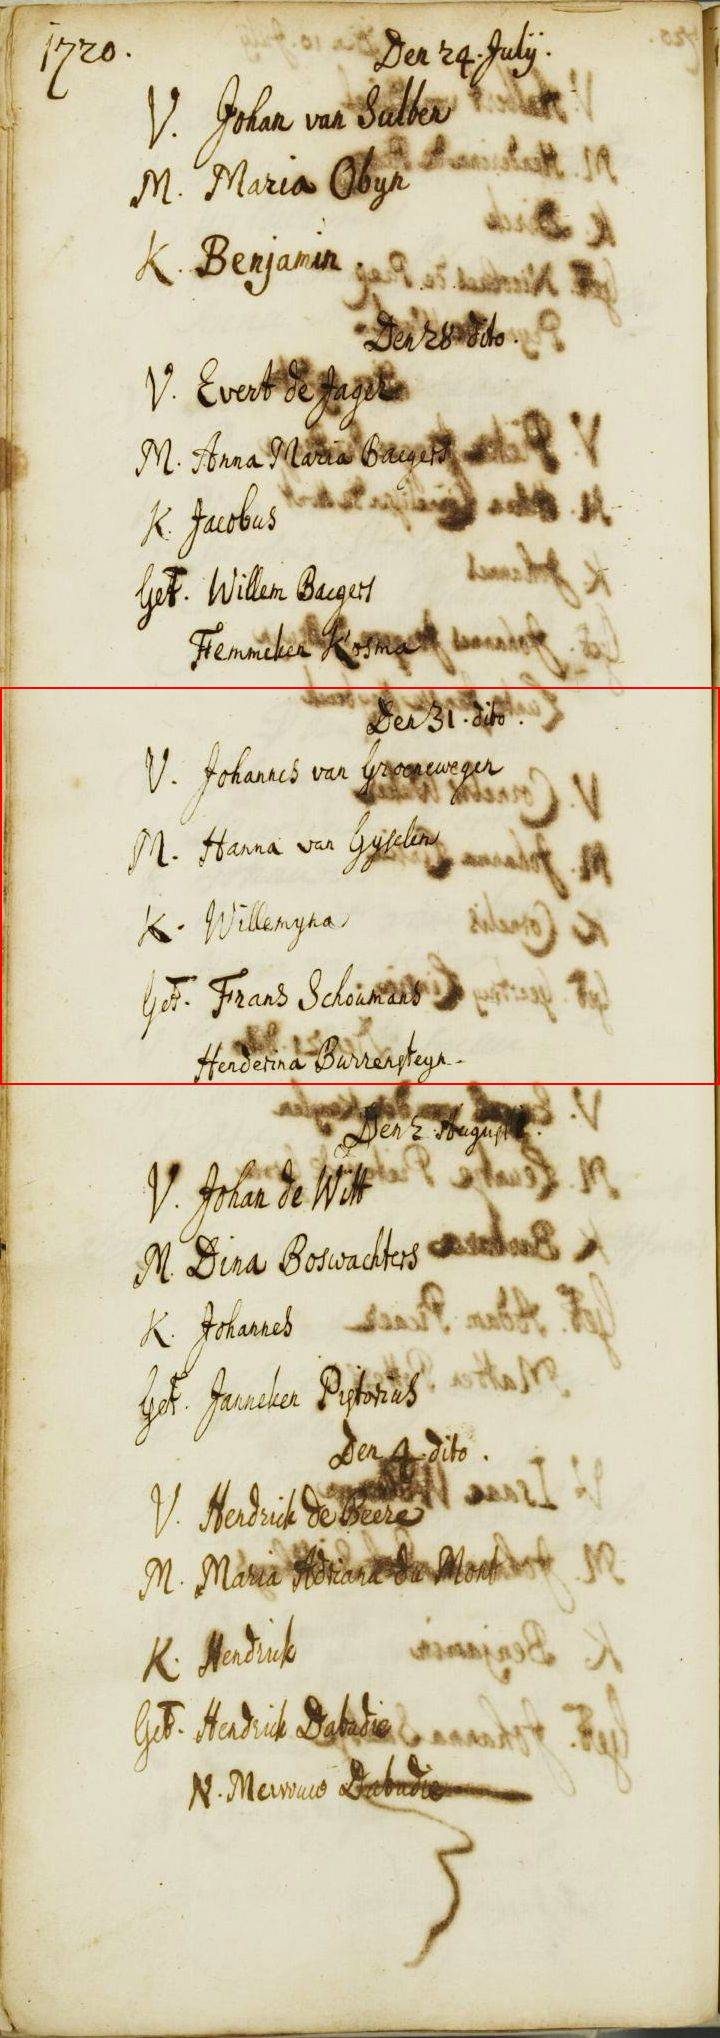 1720. Den 24. July.
V. Johan van Sulben
M. Maria Obyn
K. Benjamin
Den 28 dito.
V. Evert de Jager
M. Anna Maria Baegers
K. Jacobus
Get. Willem Baegers
Femmeken Kosma
Den 31. dito.
V. Johannes van Groenewegen
M. Hanna van Gyselen
K. Willemyna
Get. Frans Schoumans
Henderina Burrensteyn.
Den 2 August.
V. Johan de Witt
M. Dina Boswachters
K. Johannes
Get. Janneken Pistorius
Den 4 dito.
V. Hendrick de Beere
M. Maria Adriana du Mont
K. Hendrick
Get. Hendrick Dabadie
N. Dabadie